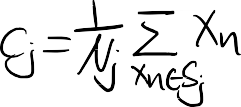 $c_j = \frac{1}{N_j} \sum_{x_n \in S_j} x_n$